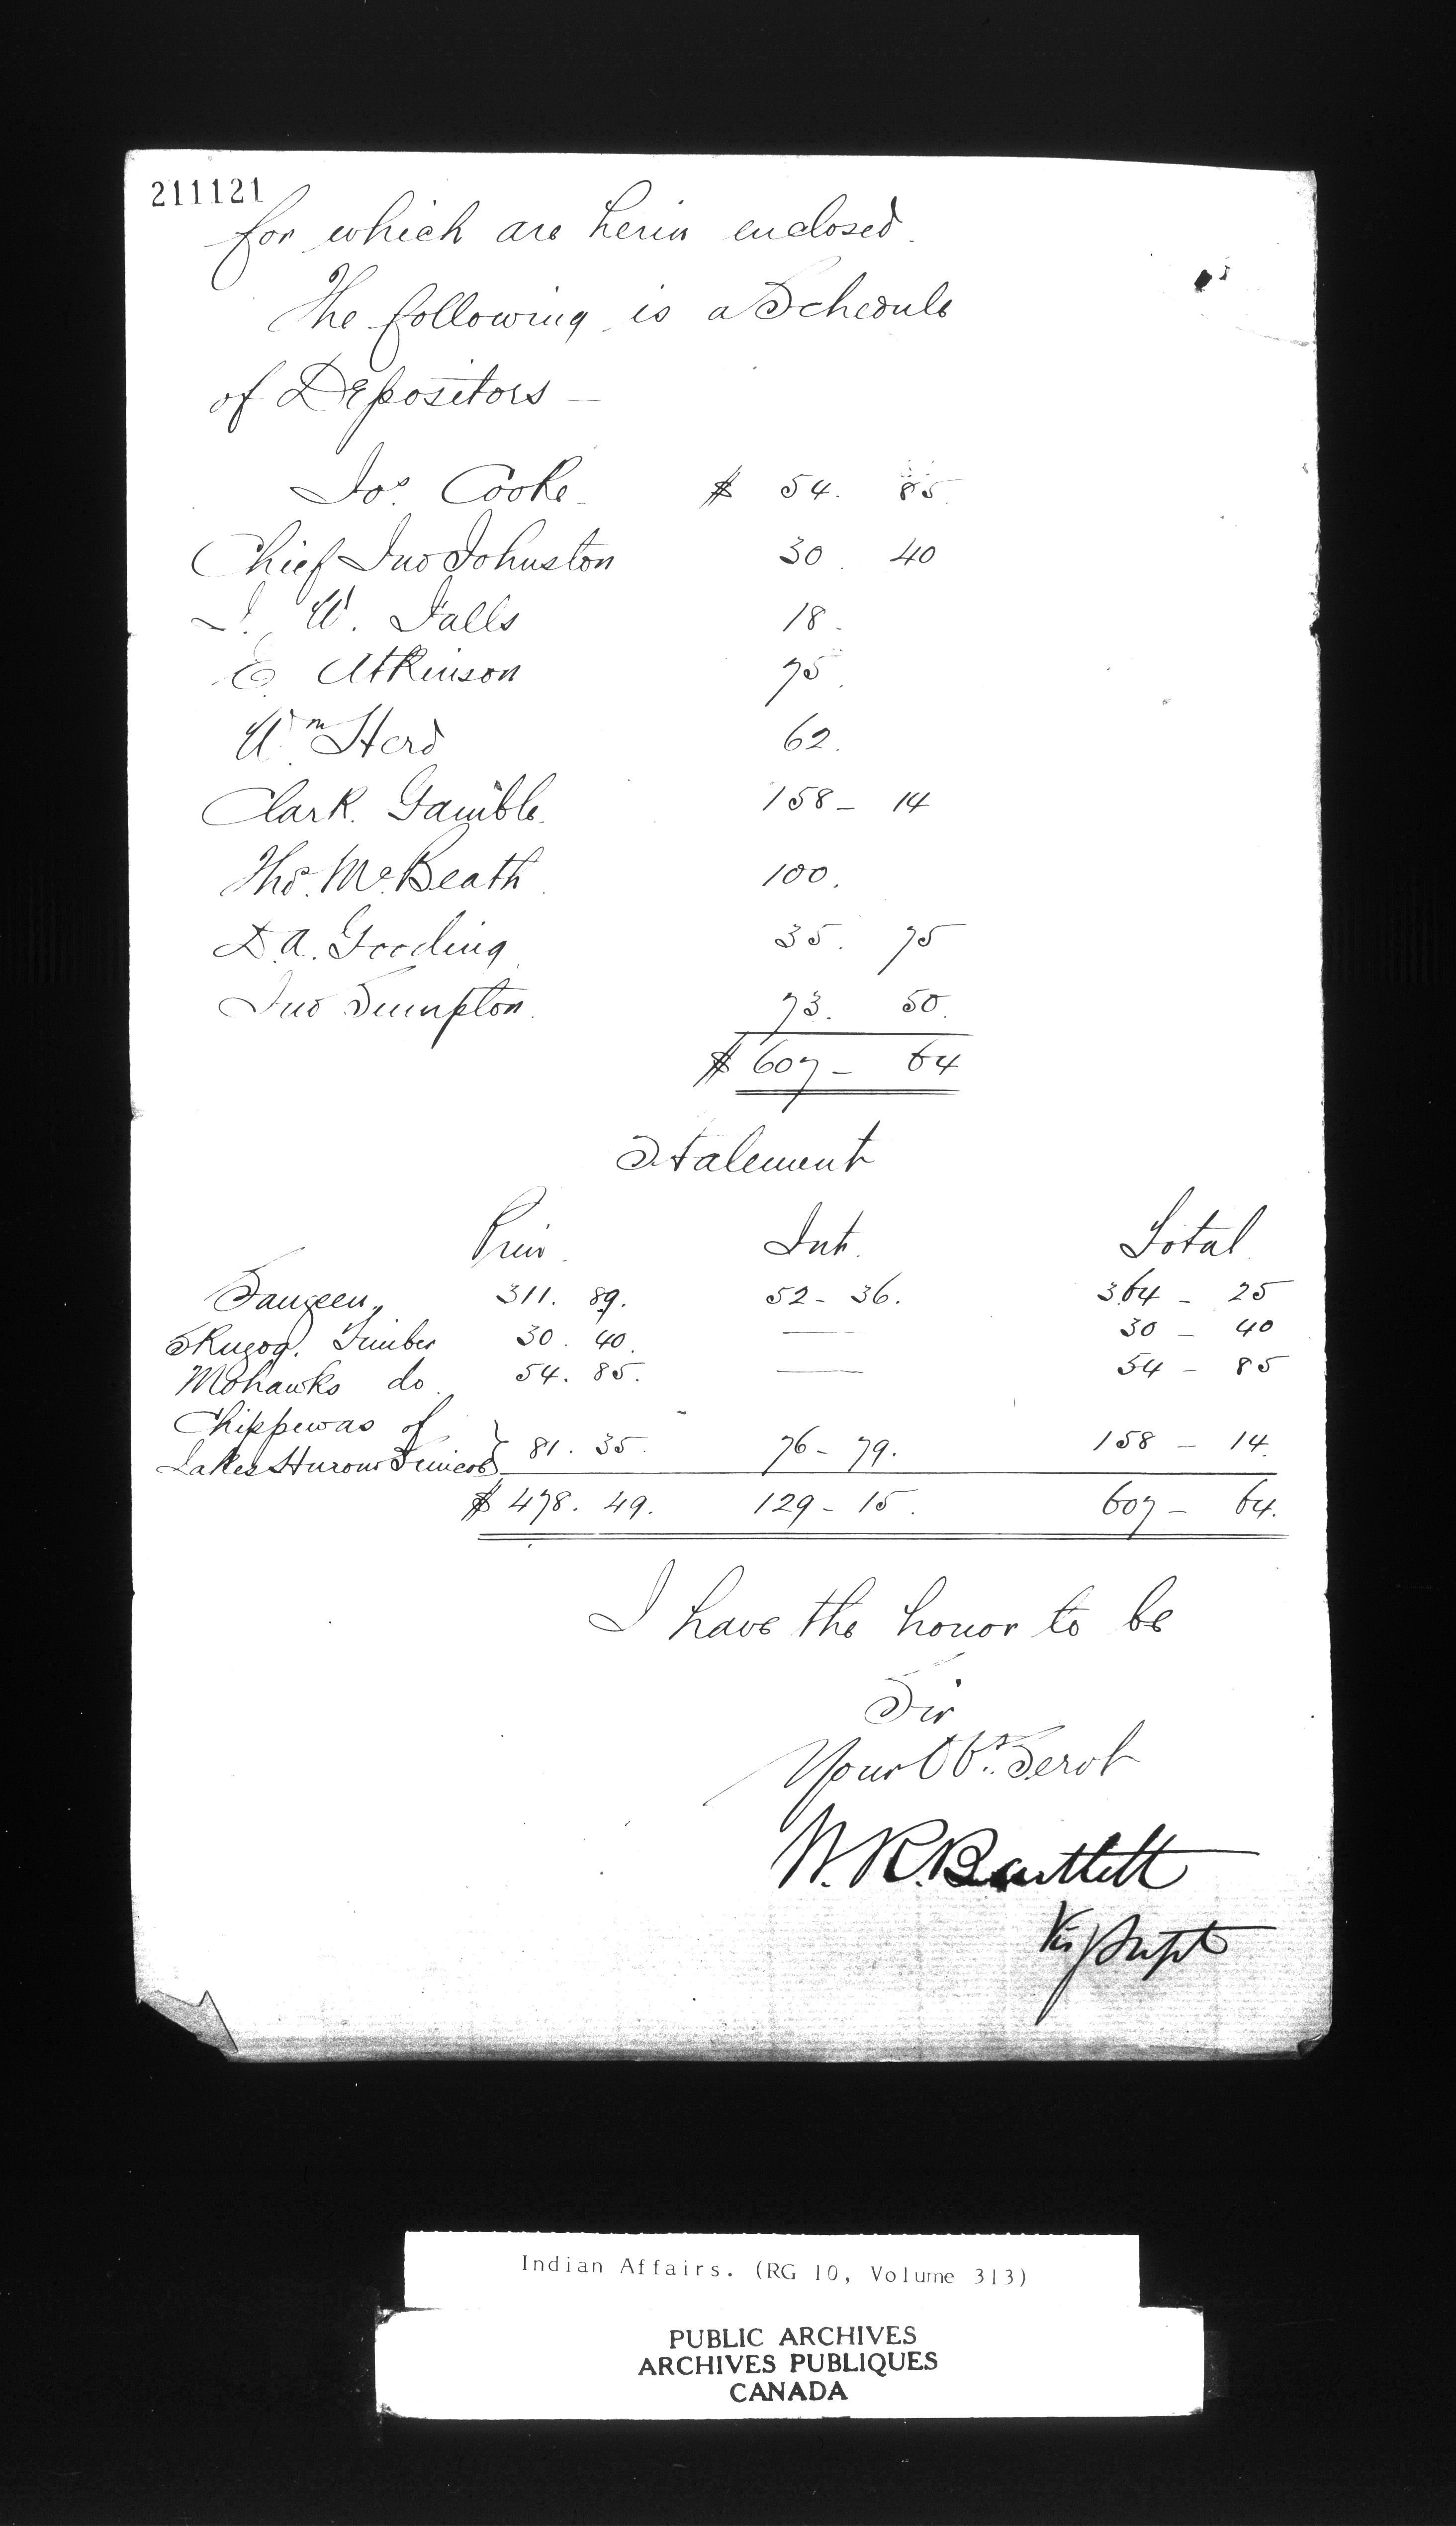 211121
for which are herin enclosed.
The following is a Schedule
of Depositors —
Jos. Cooke $ 54. 85.
Chief Jno Johnston 30. 40
J. W. Falls 18.
E. Atkinson 75.
Wm Herd 62.
Clark. Gamble. 158 — 14
Thos. McBeath. 100.
D. A. Gooding. 35. 75
Jno Sumpton. 73. 50.
$ 607 — 64
Statement
Prin. Int. Total
Saugeen, 311. 89. 52 — 36. 364 — 25
Skugog. Timber 30. 40. —— 30 — 40
Mohawks do. 54. 85. —— 54 — 85
Chippewas of
Lakes Huron & Simcoe } 81. 35. 76 — 79. 158 — 14.
$ 478. 49. 129 — 15. 607 — 64.
I have the honor to be
Sir
Your Obt. Servt
W. R. Bartlett
Vis Supt
Indian Affairs. (RG 10, Volume 313)
PUBLIC ARCHIVES
ARCHIVES PUBLIQUES
CANADA